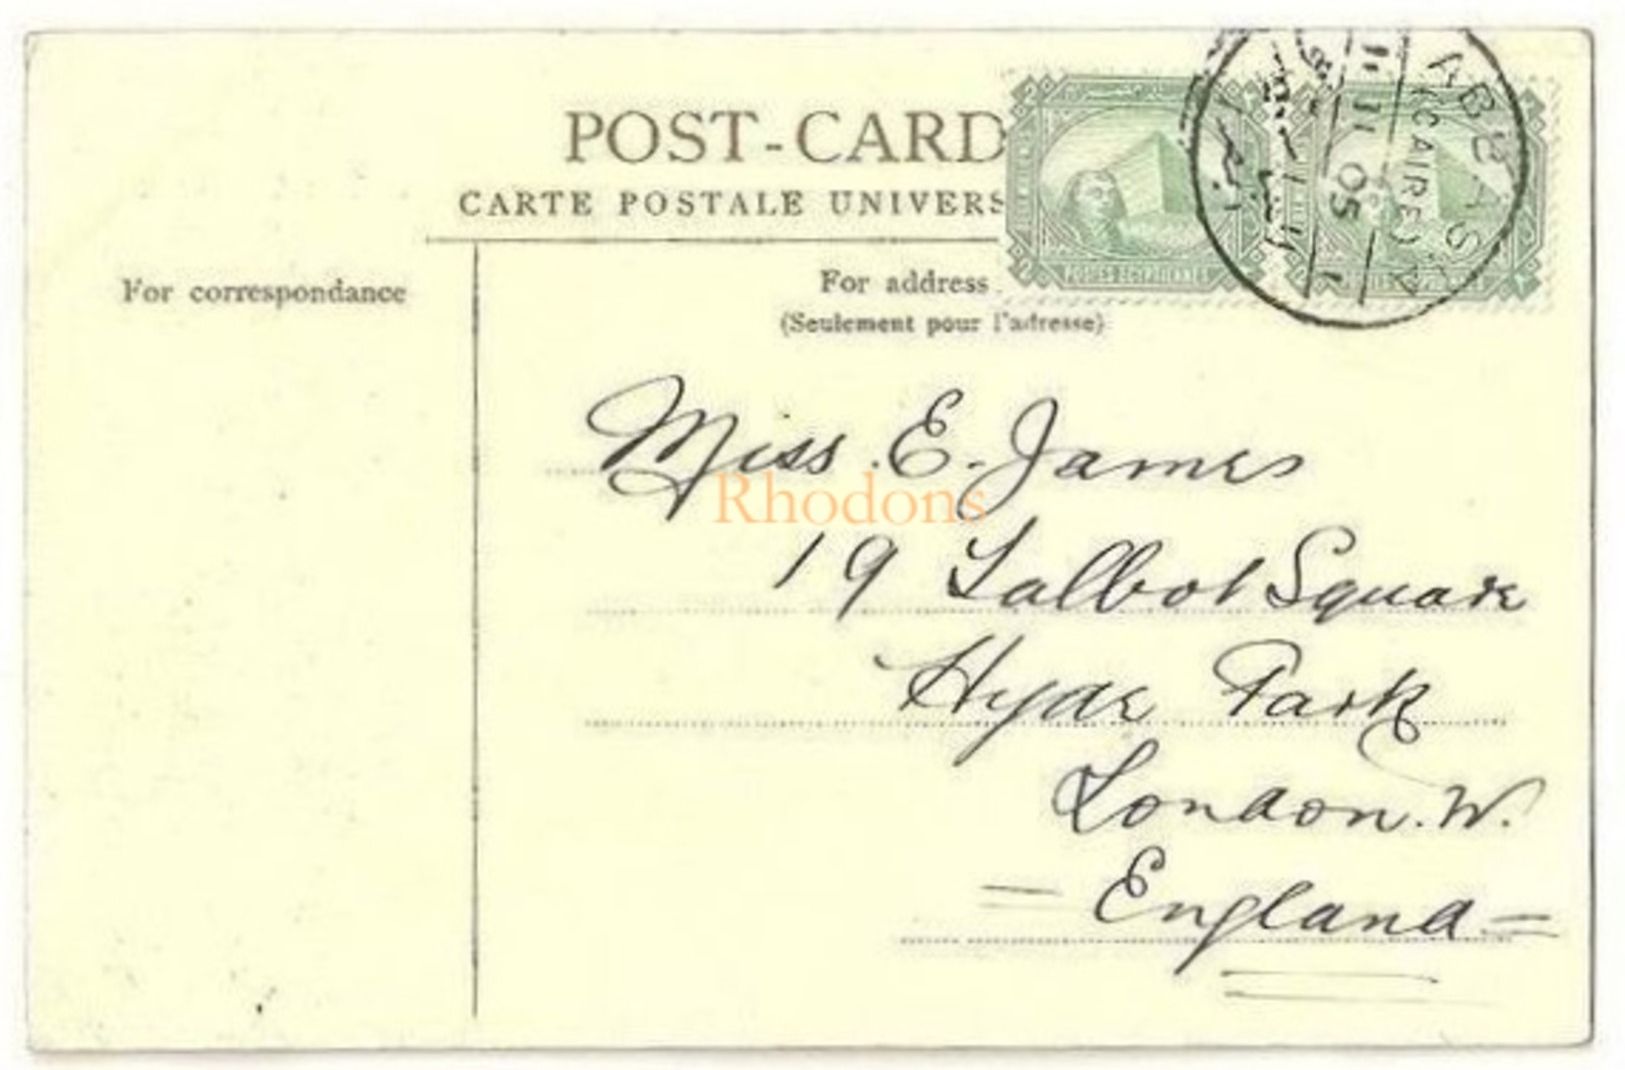 POST-CARD
CARTE POSTALE UNIVERS
For correspondance
For address
(Seulement pour l'adresse)
POSTES EGYPTIENNES
ABBASSIA
(CAIRE)
11 II 05
Miss. E. James
Rhodons
19 Talbot Square
Hyde Park
London. W.
= England =